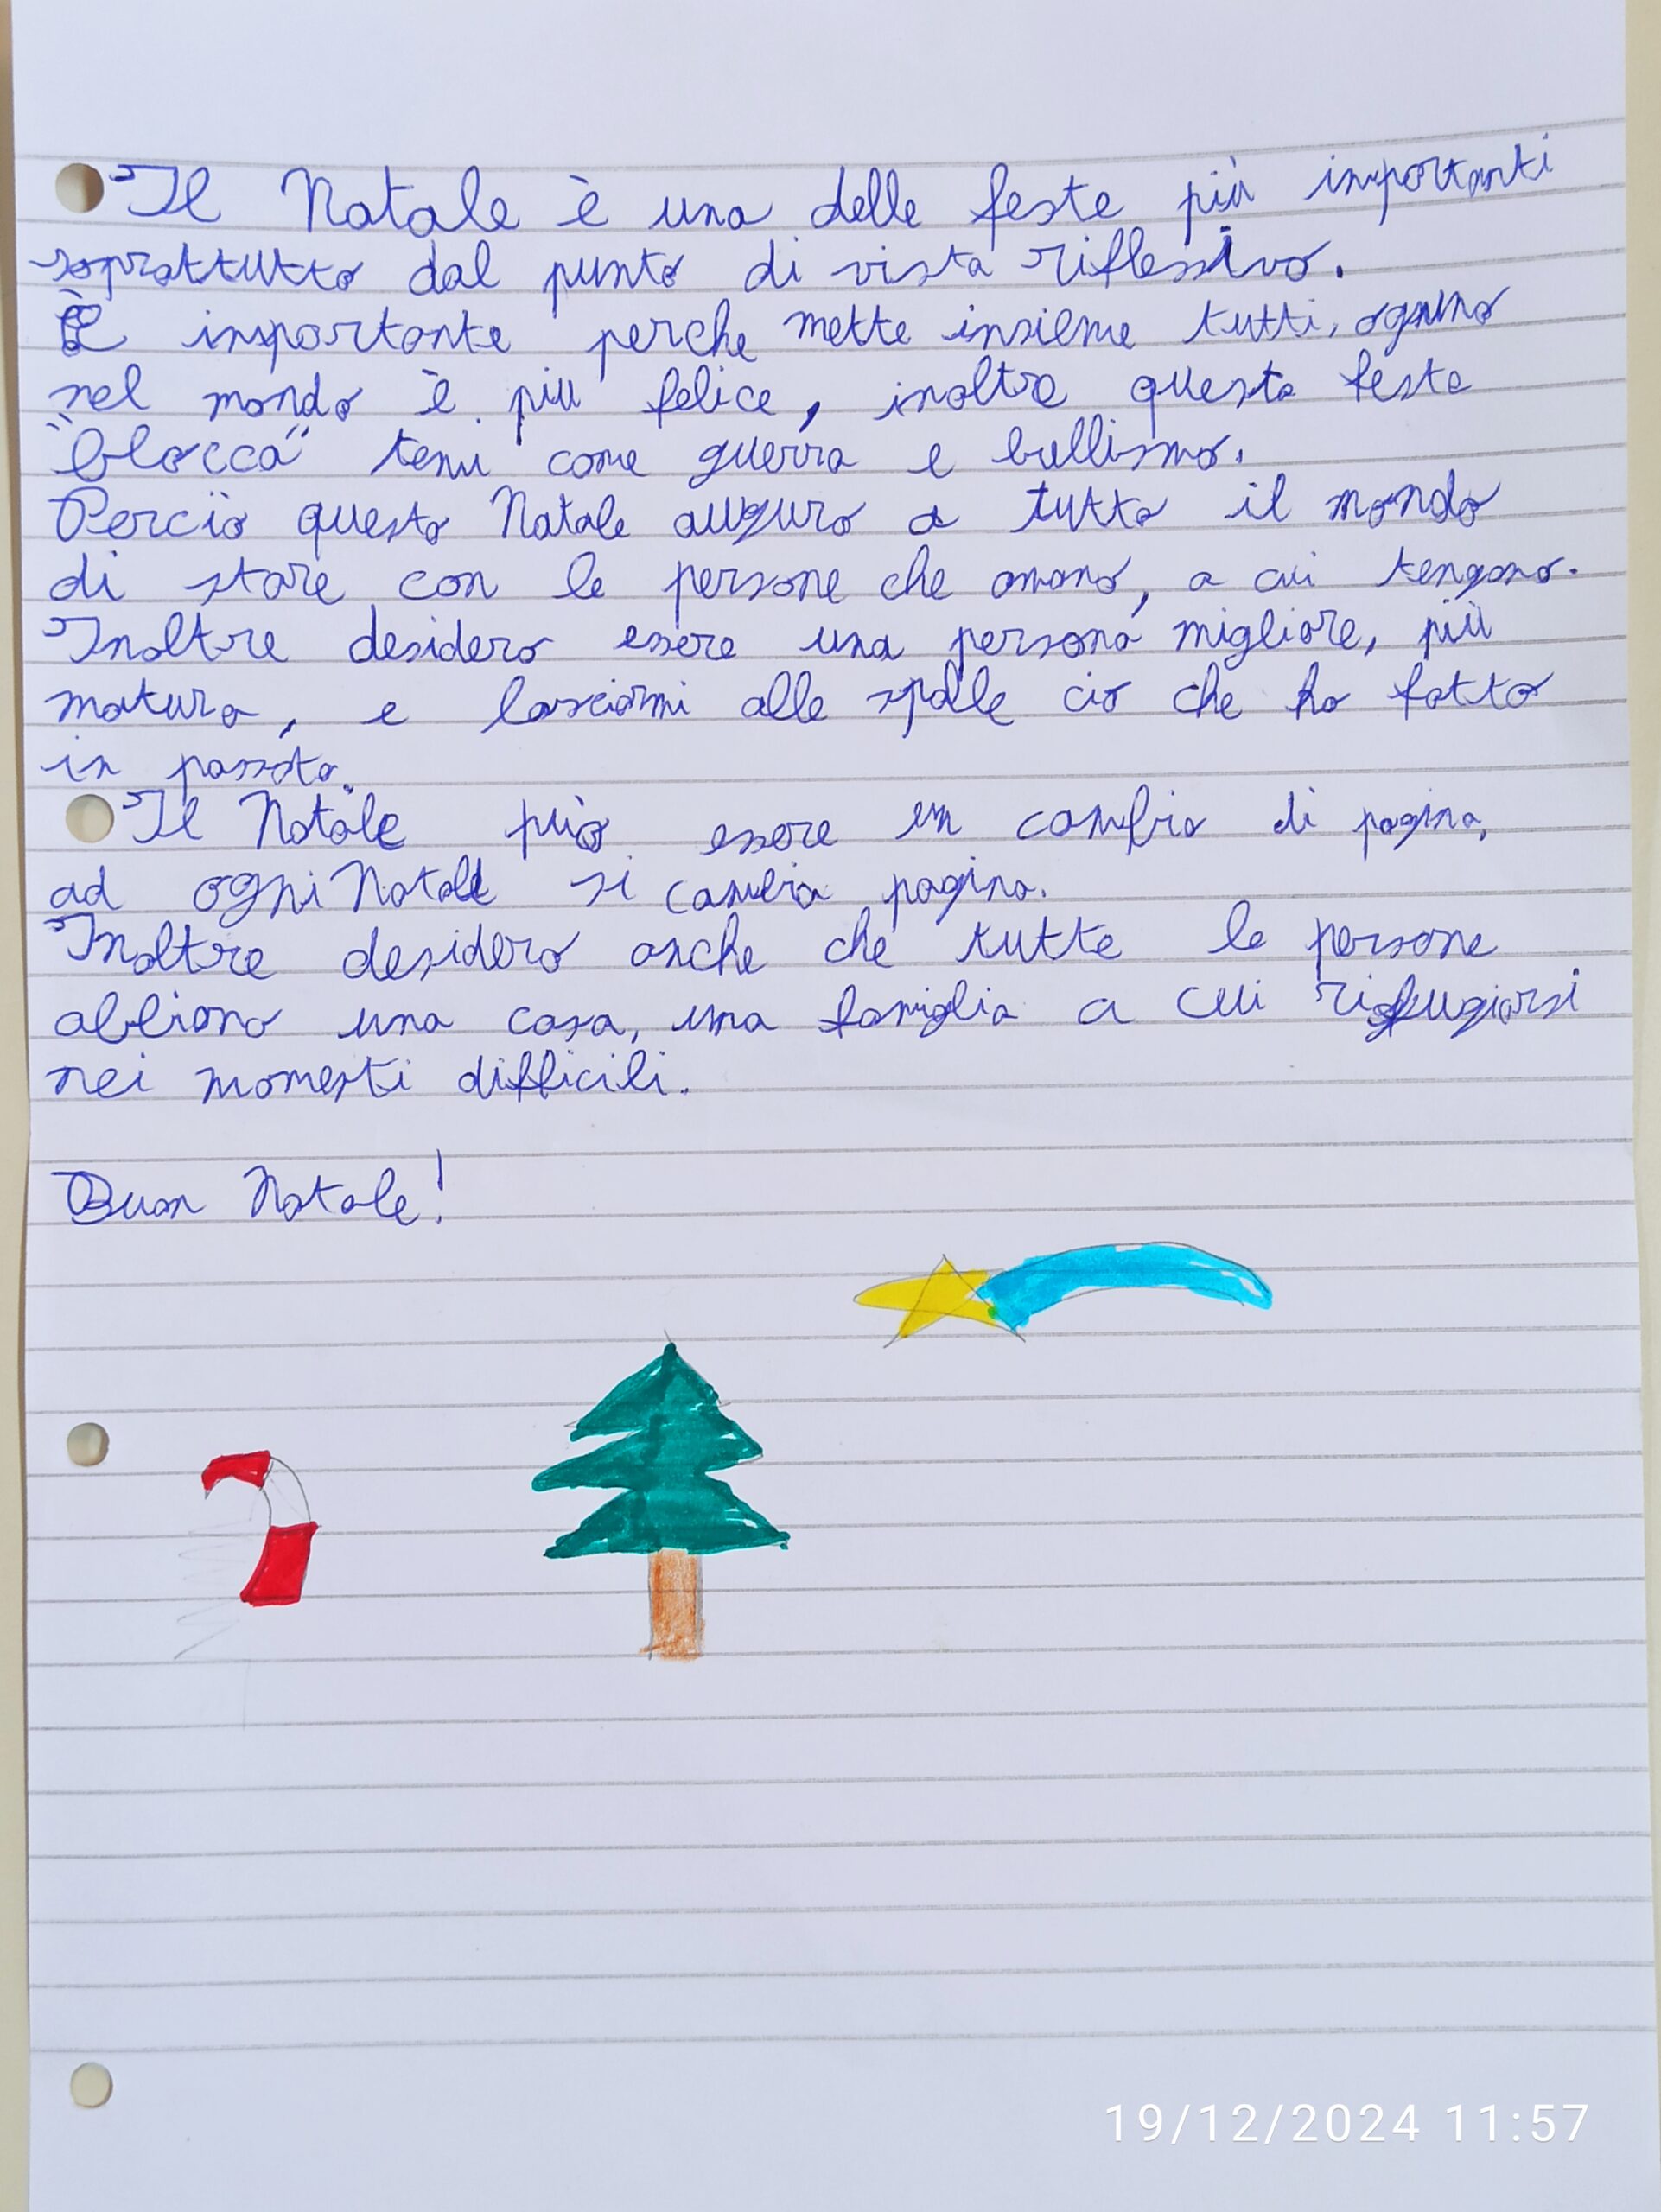 Il Natale è una delle feste più importanti
soprattutto dal punto di vista riflessivo.
È importante perche mette insieme tutti, ognuno
nel mondo è più felice, inoltre questa festa
"blocca" temi come guerra e bullismo.
Perciò questo Natale auguro a tutto il mondo
di stare con le persone che amano, a cui tengono.
Inoltre desidero essere una persona migliore, più
matura, e lasciarmi alle spalle ciò che ho fatto
in passato.
Il Natale può essere un cambio di pagina,
ad ogni Natale si cambia pagina.
Inoltre desidero anche che tutte le persone
abbiano una casa, una famiglia a cui rifugiarsi
nei momenti difficili.
Buon Natale!
19/12/2024 11:57